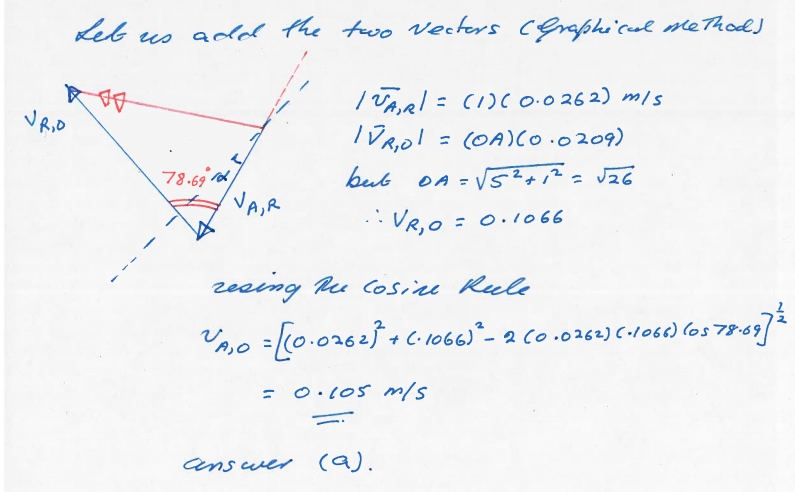 Let us add the two vectors (Graphical Method)
V R,O
78.69° α
V A,R
|V̄A,R| = (1)(0.0262) m/s
|V̄R,O| = (OA)(0.0209)
but OA = √5²+1² = √26
∴ VR,O = 0.1066
using the Cosine Rule
VA,O = [(0.0262)² + (.1066)² - 2(0.0262)(.1066)Cos 78.69]^1/2
= 0.105 m/s
answer (a).